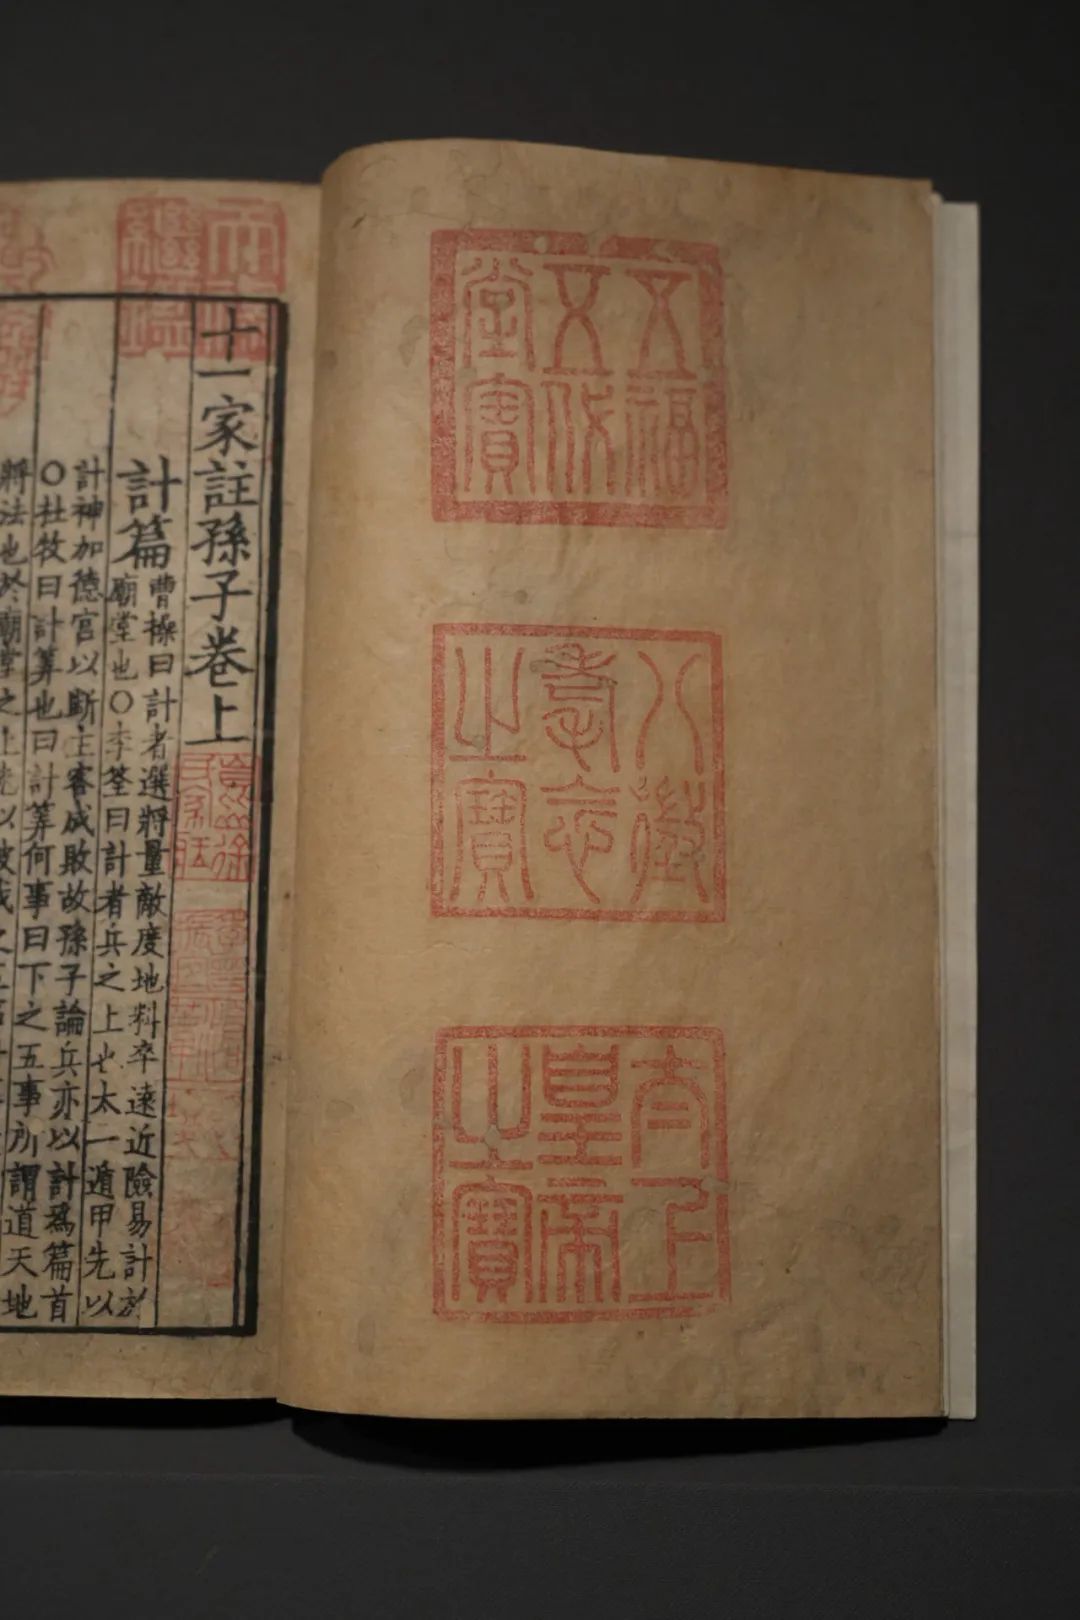 五福
五代
堂寶
八徵
耄念
之寶
太上
皇帝
之寶
天祿
繼鑑
十一家註孫子卷上
計篇
曹操曰計者選將量敵度地料卒遠近險易計於
廟堂也〇李筌曰計者兵之上也太一遁甲先以
計神加德宮以斷主客成敗故孫子論兵亦以計爲篇首
〇杜牧曰計算也曰計算何事曰下之五事所謂道天地
將法也於廟堂之上先以彼我之五